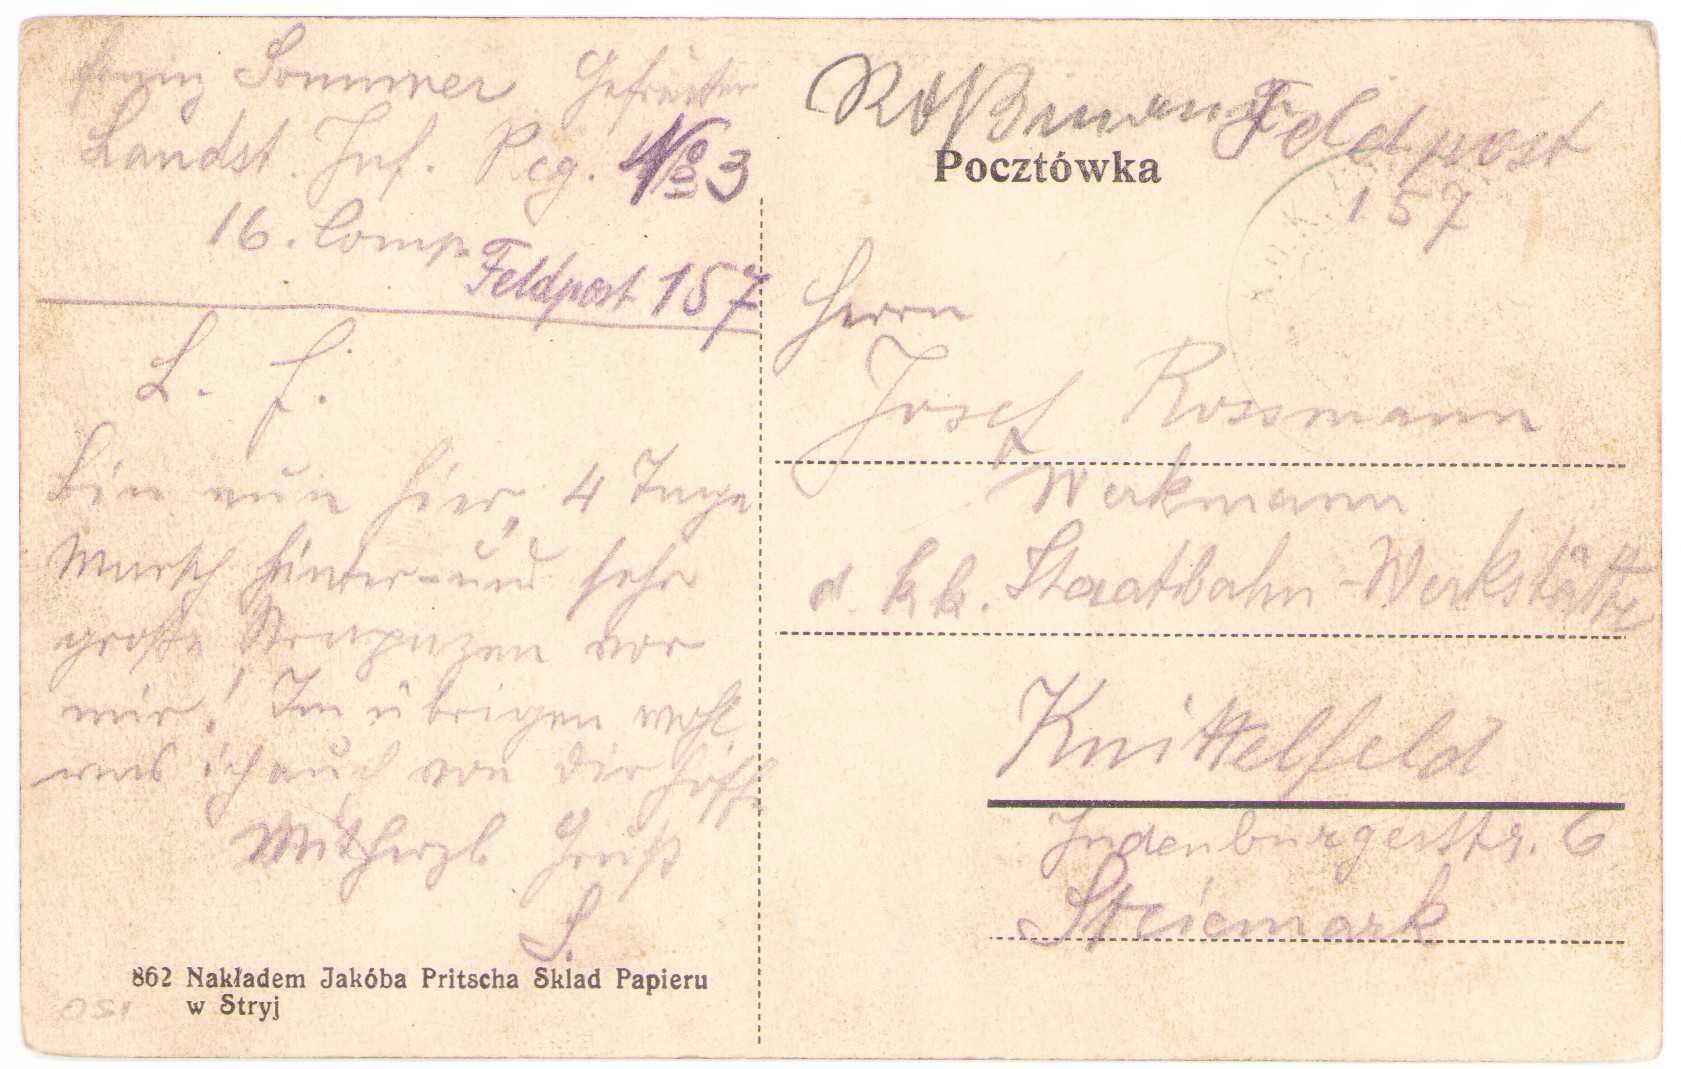 Franz Sommer Gefreiter
Landst. Inf. Reg. No 3
16. Comp.
Feldpost 157
L. F.
Bin nun hier, 4 Tage
Marsch hinter- und sehr
große Strapazen vor
mir! Im übrigen wohl
was ich auch von Dir hoffe
Mit herzl. Gruß
S.
862 Nakładem Jakóba Pritscha Sklad Papieru
w Stryj
Roßmann
Feldpost
157
Pocztówka
Herrn
Josef Rossmann
Werkmann
d. k. k. Staatbahn-Werkstätte
Knittelfeld
Judenburgerstr. 6
Steiemark